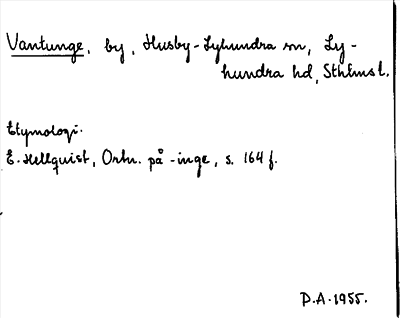 Vantunge, by, Husby-Lyhundra sn, Ly-
hundra hd, Sthlms l.
Etymologi.
E. Hellquist, Ortn. på -inge, s. 164 f.
D.A. 1955.